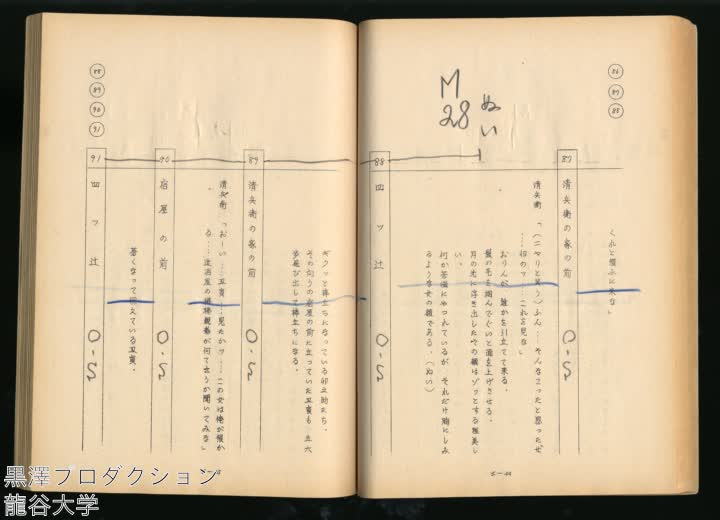 86
87
88
くれと頼ふに来な」
87 清兵衛の家の前
清兵衛「(ニヤリと笑う)ふん……そんなこったと思ったぜ
……卯のッ……これを見な」
おりんが、誰かを引立てて来る。
髪の毛を掴んでぐいと面を上げさせる。
月の光に浮き出したその顔はゾッとする程美し
い。
何か苦悩にやつれているが、それだけ胸にしみ
るような女の顔である。(ぬい)
M28
ぬい
88 四ッ辻
O.S
ギクッと棒立ちになっている卯之助たち。
その向うの宿屋の前に立っていた丑寅も 五六
歩飛び出して棒立ちになる。
89 清兵衛の家の前
清兵衛「おーい……丑寅……見たかッ……この女は俺が預か
る……造酒屋の
が何て云うか聞いてみな」
90 宿屋の前
O.S
蒼くなって
えている丑寅。
91 四ッ辻
O.S
88
89
90
91
黒澤プロダクション
龍谷大学